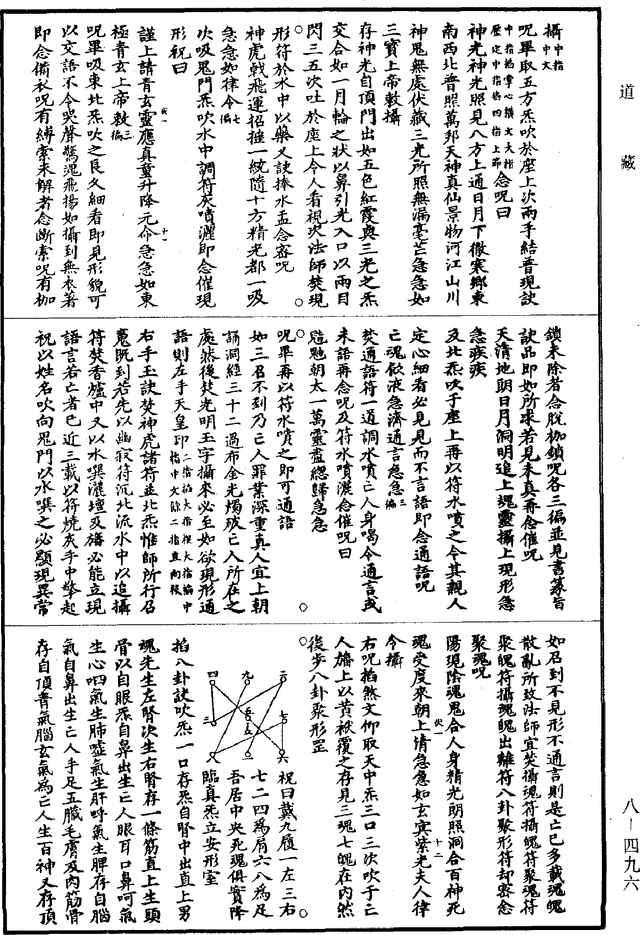 道藏
攝中指中文
呪畢取五方炁吹於座上次兩手結普現訣
中指掐掌心橫文大指壓定中指捻四指上節念呪曰
神光神光照見八方上通日月下徹寒鄉東
南西北普照萬邦天神真仙景物河江山川
神鬼無處伏藏三光所照無漏毫芒急急如
三寶上帝敕攝
存神光自頂門出如五色紅霞與三光之炁
交合如一月輪之狀以鼻引光入口以兩目
閃三五次吐於座上令人看視次法師焚現
形符於水中以藥叉訣捧水盂念容呪
神虎戟飛運招摧一統隨十方精光都一吸
急急如律令七徧
次吸鬼門炁吹水中調符灰噴灑即念催現
形祝曰
謹上請青玄靈應真童升降元命急急如東
伏一 十一
極青玄上帝敕三徧
呪畢吸東北炁吹之良久細看即見形貌可
以交語不令哭聲驚魂飛揚如攝到無衣著
即念備衣呪有縛索未解者念斷索呪有枷
鎖未除者念脫枷鎖呪各三徧並見書篆旨
訣品即如所求若見未真再念催呪
天清地朗日月洞明追上魂靈攝上現形急
急疾疾
及北炁吹于座上再以符水噴之令其親人
定心細看必見見而不言語即念通語呪
亡魂歆液急濟通言急急三徧
焚通語符一道調水噴亡人身喝令通言或
未語再念呪及符水噴灑念催呪曰
朝太一萬靈盡總歸急急
呪畢再以符水噴之即可通語
如三召不到乃亡人罪業深重真人宜上朝
誦洞經三十二過布金光燭破亡人所在之
處然後焚光明玉字攝來必至如欲現形通
語則左手天皇印二指掐大指根大指掐中指中文餘二指直向後
右手玉訣焚神虎諸符並北炁惟師所行召
魂既到若先以幽寂符沉北流水中以追攝
符焚香爐中又以水噀灑壇及旛必能立現
語言若亡者已近三載以符燒灰手中擎起
祝以姓名吹向鬼門以水噀之必顯現異常
如召到不見形不通言則是亡已多載魂魄
散亂所致法師宜焚攝魂符攝魄符聚魂符
聚魄符攝魂魄出離符八卦聚形符却密念
聚魂呪
陽現陰魂魄合人身精光朗照洞合百神死
伏一 十二
魂受度來朝上清急急如玄㝠紫光夫人律
令攝
右呪掐煞文仰取天中炁三口三次吹于亡
人旛上以黃袱覆之存見三魂七魄在內然
後步八卦聚形罡
二 七 六
九 五 一
四 三 八
祝曰戴九履一左三右
七二四為肩六八為足
吾居中央死魂俱實降
臨真炁立安形室
掐八卦訣吹炁一口存炁自腎中出直上男
魂先生左腎次生右腎存一條筋直上生頭
骨以自眼炁自鼻出生亡人眼耳口鼻呵氣
生心呬氣生肺噓氣生肝呼氣生脾存自腦
氣自鼻出生亡人手足五臟毛膚及肉筋骨
存自頂青氣腦玄氣為亡人生百神又存頂
八－四九六